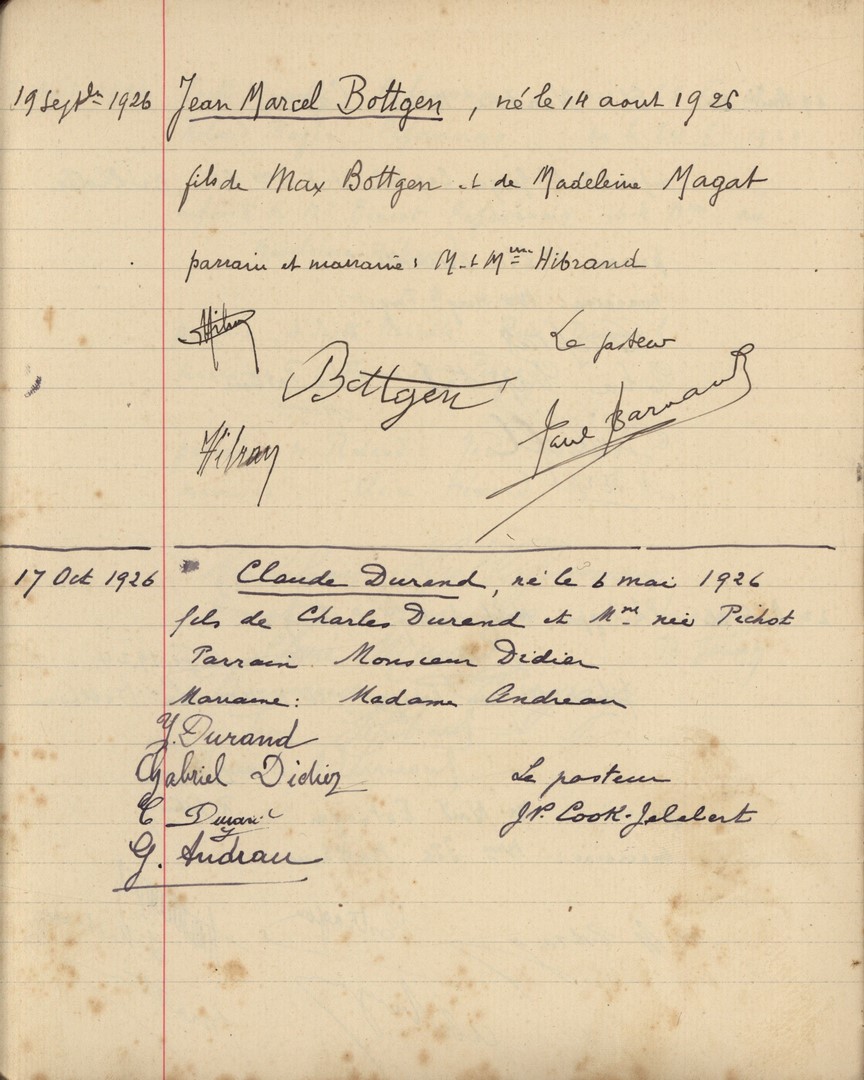 19 Septbre 1926 Jean Marcel Bottgen, né le 14 aout 1926
fils de Max Bottgen et de Madeleine Magat
parrain et marraine : M. et Mme Hibrand
Le pasteur
Bottgen
Paul Barnaud
17 Oct 1926 Claude Durand, né le 6 mai 1926
fils de Charles Durand et Mme née Pichot
Parrain Monsieur Didier
Marraine : Madame Andreau
Y. Durand
Gabriel Didier
Le pasteur
C Durand
JP. Cook-Jalabert
G. Andrau